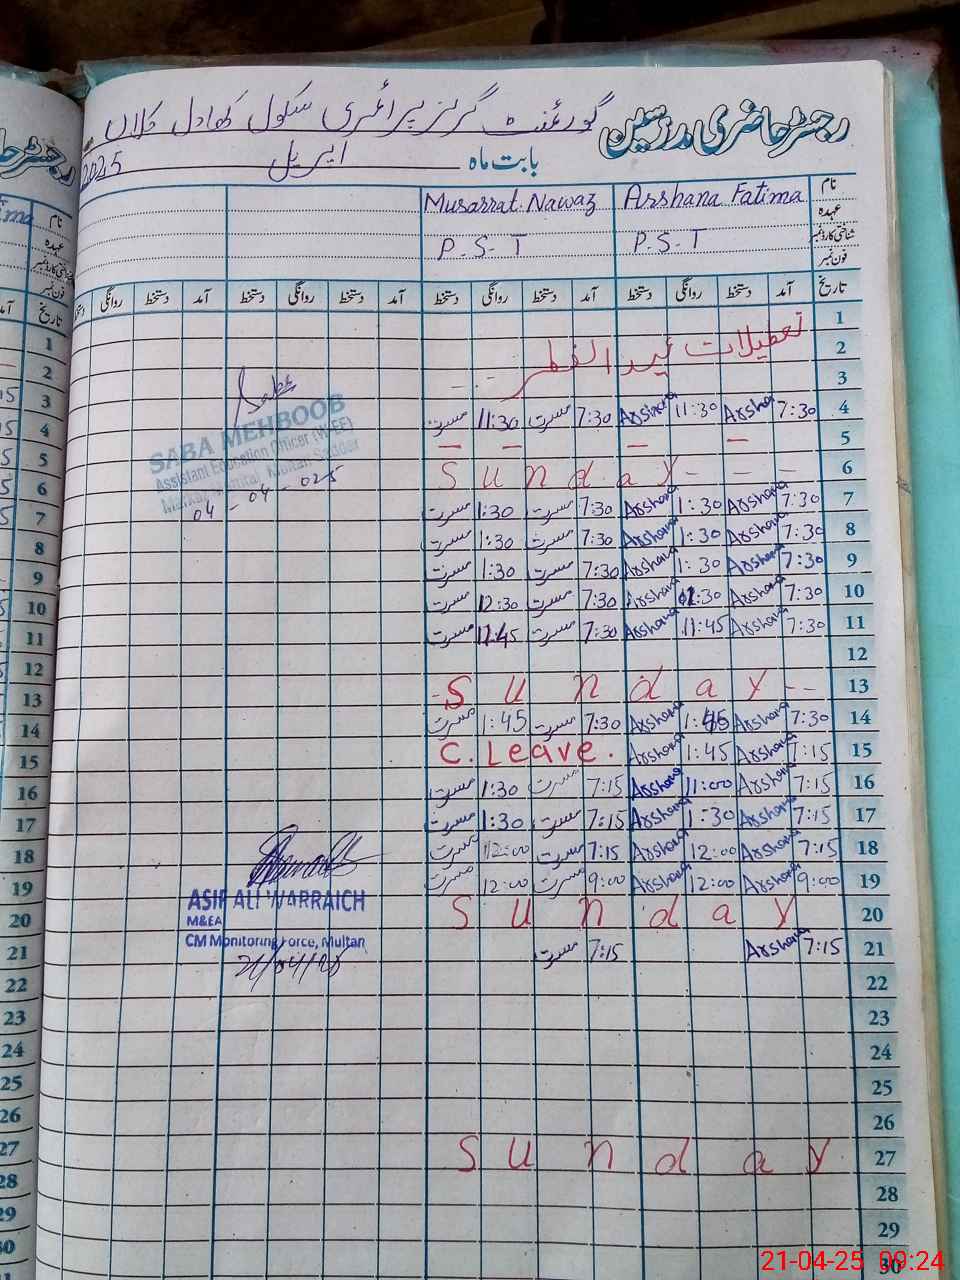 رجسٹر حاضری مدرسین گورنمنٹ گرلز پرائمری سکول کھادل کلاں
بابت ماہ اپریل 2025
نام Arshana Fatima Musarrat Nawaz
عہدہ
شناختی کارڈ نمبر P.S.T P.S.T
فون نمبر
تاریخ آمد دستخط روانگی دستخط آمد دستخط روانگی دستخط آمد دستخط روانگی دستخط آمد دستخط روانگی دستخط
1
2 تعطیلات عید الفطر
3
4 7:30 Arshana 11:30 Arshana 7:30 مسرت 11:30 مسرت
5 — — — —
6 Sunday - - - -
7 7:30 Arshana 1:30 Arshana 7:30 مسرت 1:30 مسرت
8 7:30 Arshana 1:30 Arshana 7:30 مسرت 1:30 مسرت
9 7:30 Arshana 1:30 Arshana 7:30 مسرت 1:30 مسرت
10 7:30 Arshana 12:30 Arshana 7:30 مسرت 12:30 مسرت
11 7:30 Arshana 11:45 Arshana 7:30 مسرت 11:45 مسرت
12
13 - Sunday - -
14 7:30 Arshana 1:45 Arshana 7:30 مسرت 1:45 مسرت
15 7:15 Arshana 1:45 Arshana C. Leave.
16 7:15 Arshana 11:00 Arshana 7:15 مسرت 1:30 مسرت
17 7:15 Arshana 1:30 Arshana 7:15 مسرت 1:30 مسرت
18 7:15 Arshana 12:00 Arshana 7:15 مسرت 12:00 مسرت
19 9:00 Arshana 12:00 Arshana 9:00 مسرت 12:00 مسرت
20 Sunday
21 7:15 Arshana 7:15 مسرت
22
23
24
25
26
27 Sunday
28
29
30
SABA MEHBOOB
Assistant Education Officer (W-EE)
04-04-025
ASIF ALI WARRAICH
M&EA
CM Monitoring Force, Multan
21/04/25
رجسٹر
نام
عہدہ
شناختی کارڈ نمبر
فون نمبر
تاریخ
1
2
3
4
5
6
7
8
9
10
11
12
13
14
15
16
17
18
19
20
21
22
23
24
25
26
27
28
29
30
21-04-25 09:24